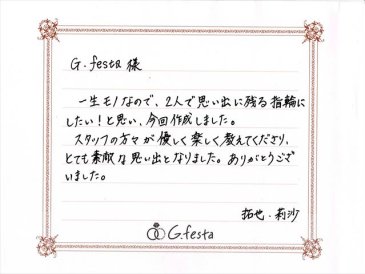 G.festa 様
一生モノなので、2人で思い出に残る指輪に
したい!と思い、今回作成しました。
スタッフの方々が優しく楽しく教えてくださり、
とても素敵な思い出となりました。ありがとうござ
いました。
拓也・莉沙
G.festa